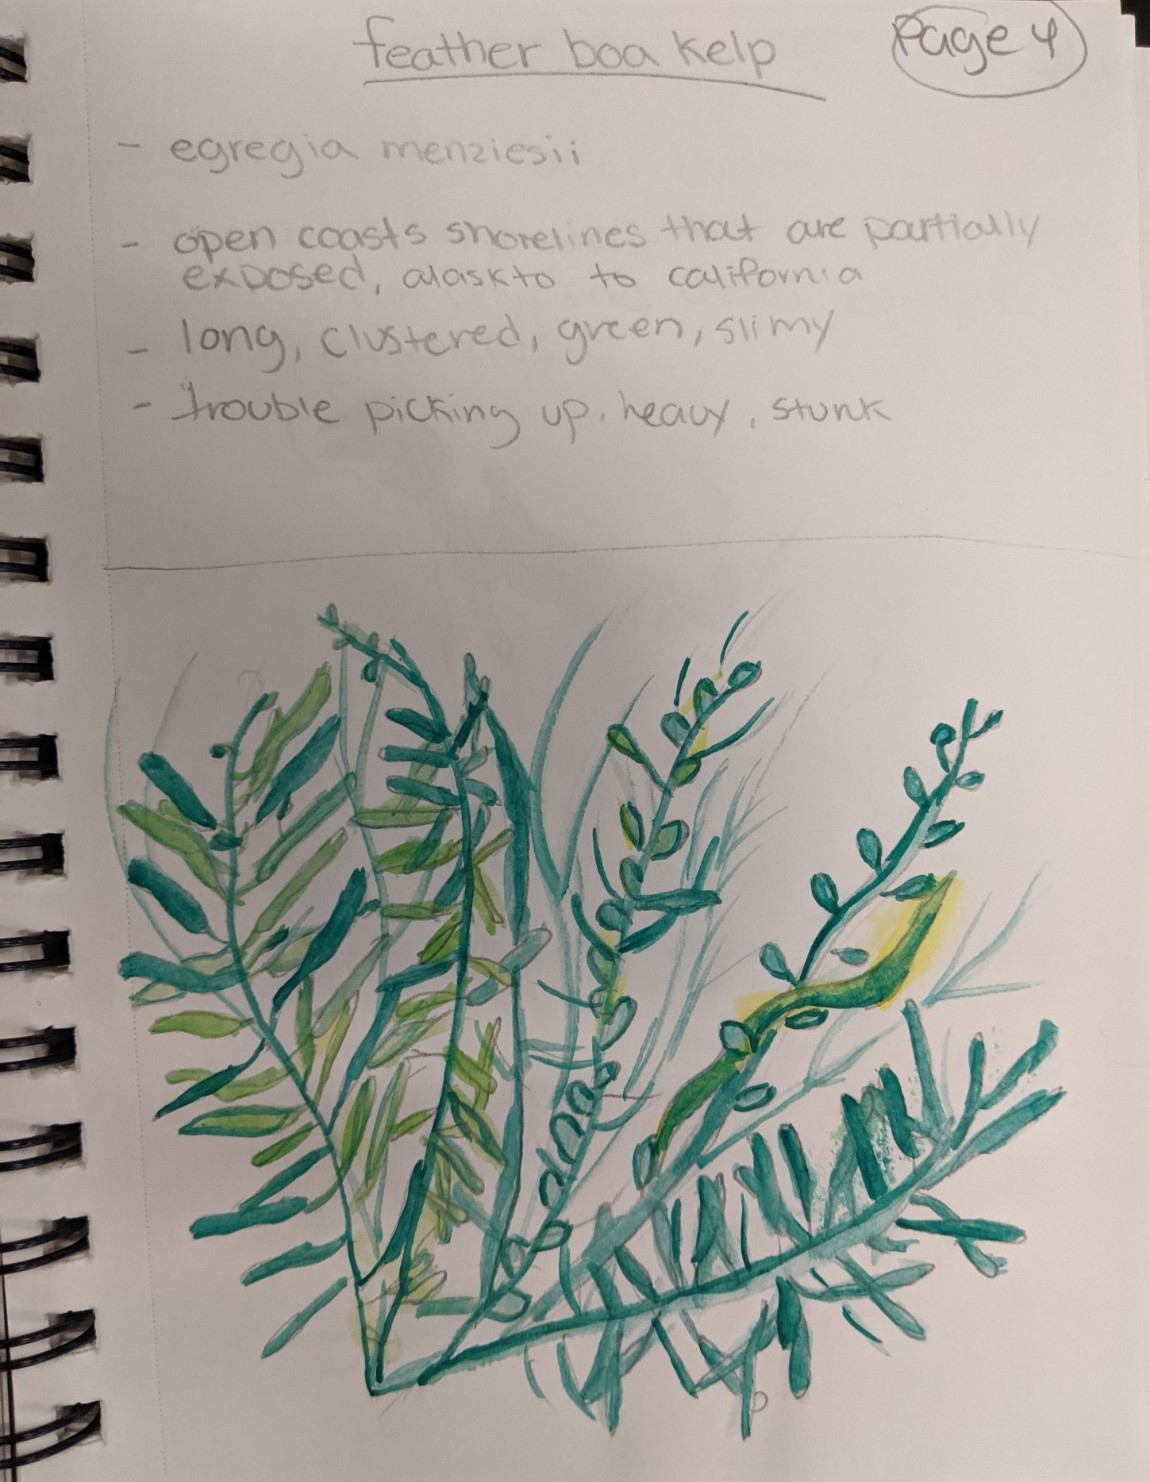 feather boa kelp
Page 4
- egregia menziesii
- open coasts shorelines that are partially
exposed, alaskto to california
- long, clustered, green, slimy
- trouble picking up, heavy, stunk